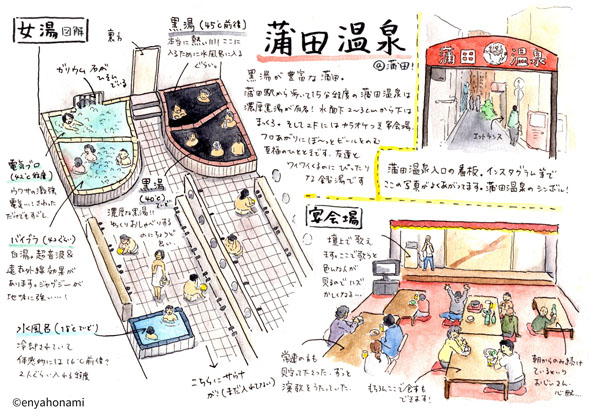 女湯 図解
裏方
黒湯(45℃前後)
本当に熱い!!!! ここに
入るために水風呂に入る
ぐらい。
ガリウム 石が
電気ブロ
(42℃程度)
ウワサの激強
電気…! さわった
だけでもダメ。
バイブラ(42℃ぐらい)
白湯。超音波&
遠赤外線効果が
あります。ジャグジーが
地味に強い…!
水風呂(18℃ぐらい)
冷却されていて
体感的には16℃前後?
2人ぐらい入れる程度
黒湯
(40℃ぐらい)
濃厚な黒湯!!
ゆっくりおしゃべりする
のにちょうど
良い。
こちらにサウナ
が!(まだ入れてない)
蒲田温泉
@蒲田!
黒湯が豊富な蒲田。
蒲田駅から歩いて15分程度の蒲田温泉は
濃厚黒湯が有名! 水面下2~3cmから下は
まっくろ。そして2Fにはカラオケつき宴会場。
フロあがりにぼーっとビールとのむ
至福のひとときです。友達と
ワイワイくるのにぴったり
な銭湯です
蒲田 温泉
エントランス
蒲田温泉入口の看板。インスタグラム等で
この写真がよくあがってます。蒲田温泉のシンボル!
宴会場
壇上で歌え
ます。ここで歌うと
色んな人が
見るのでハズ
かしくなる…
常連のおも
貯めて下さった、ずっと
演歌をうたっていた。
もちろんここで食事も
できます!
朝からのみ続け
ているという
おじいさん。
心配…
©enyahonami